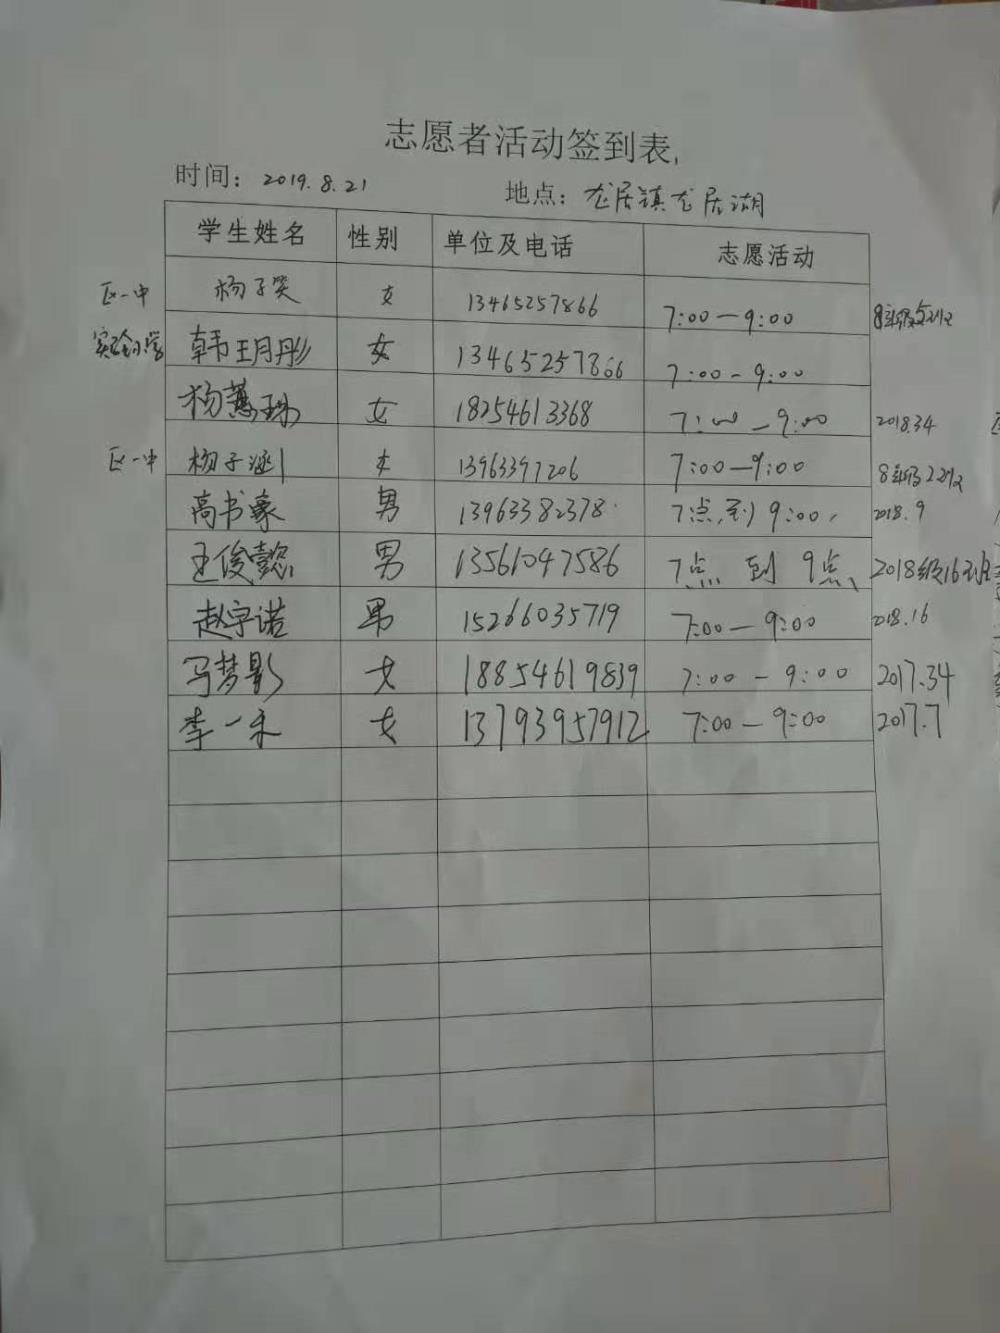 志愿者活动签到表
时间：2019.8.21 地点：龙居镇龙居湖
学生姓名 性别 单位及电话 志愿活动
区一中 杨子笑 女 13465257866 7:00—9:00 8年级
实验小学 韩玥彤 女 13465257866 7:00-9:00
杨蕙 女 18254613368 7:00—9:00 2018.34
区一中 杨子涵 女 13963397206 7:00—9:00 8年级22班
高书豪 男 13963382378 7点到9:00 2018.9
王俊懿 男 13561047586 7点到9点 2018级16班
赵宇诺 男 15266035719 7:00—9:00 2018.16
马梦影 女 18854619839 7:00-9:00 2017.34
李一禾 女 13793957912 7:00—9:00 2017.7